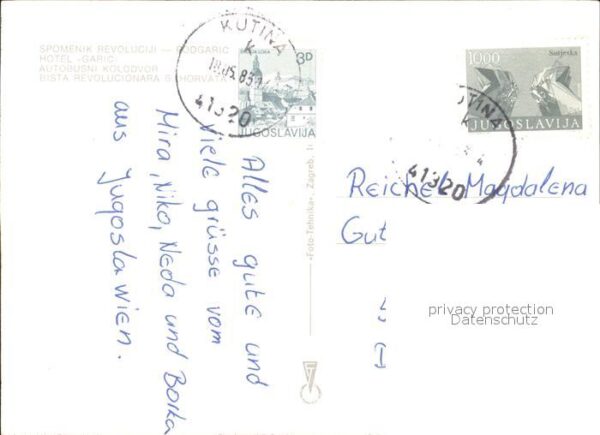 SPOMENIK REVOLUCIJI — PODGARIĆ
HOTEL »GARIĆ«
AUTOBUSNI KOLODVOR
BISTA REVOLUCIONARA G. HORVATA
KUTINA
18.05.83
41320
3D
JUGOSLAVIJA
1000
Sutjeska
JUGOSLAVIJA
KUTINA
41320
Alles gute und
viele grüsse vom
Mira, Niko, Neda und Borka
aus Jugoslawien.
»Foto-Tehnika«, Zagreb,
Reichel Magdalena
Gut
privacy protection
Datenschutz